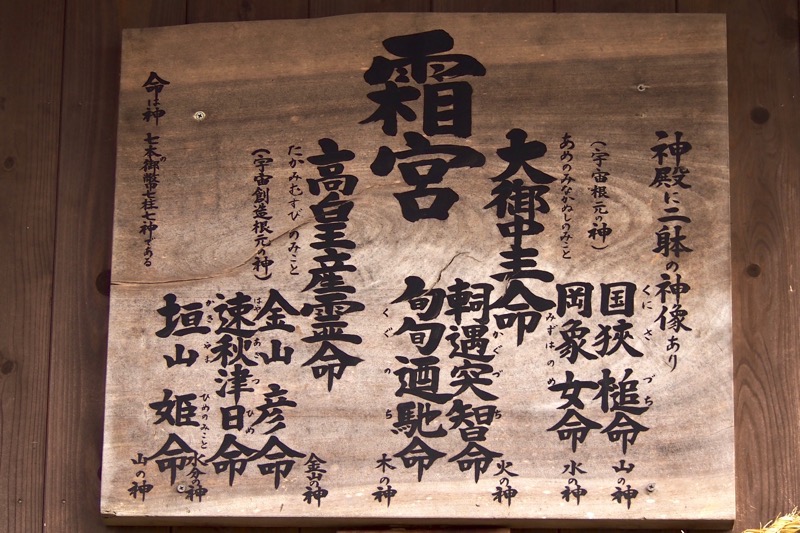 神殿に二躰の神像あり
霜宮
(宇宙根元の神)
あめのみなかぬしのみこと
大御中主命
高皇産霊命
たかみむすびのみこと
(宇宙創造根元の神)
くにさづち
国狭槌命
山の神
岡象女命
みずはのめ
水の神
かぐづち
軻遇突智命
火の神
旬旬廼馳命
くぐのち
木の神
金山彦命
金山の神
つひめ
速秋津日命
水分の神
ひめのみこと
垣山姫命
山の神
命は神 七本の御幣七柱七神である